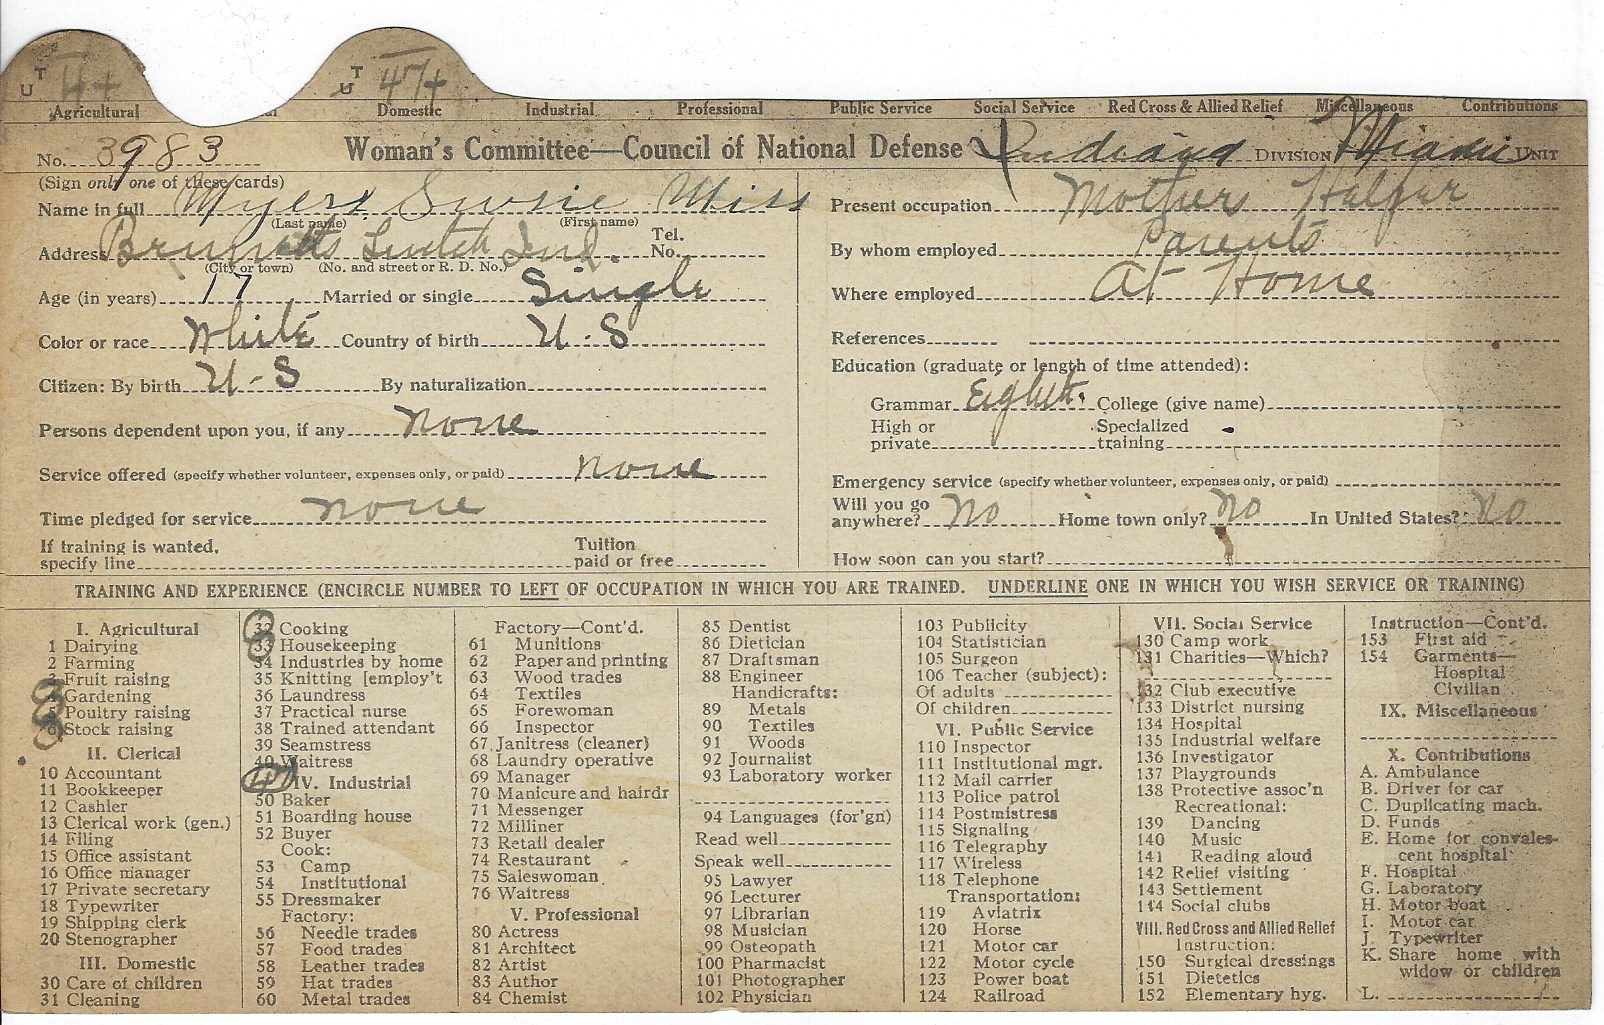 T
U
4+
T
U
47+
Agricultural Domestic Industrial Professional Public Service Social Service Red Cross & Allied Relief Miscellaneous Contributions
No. 3983 Woman's Committee—Council of National Defense Indiana DIVISION Miami UNIT
(Sign only one of these cards)
Name in full Myers, Susie Miss
(Last name) (First name)
Address Bennetts Switch Ind. Tel. No.
(City or town) (No. and street or R. D. No.)
Age (in years) 17 Married or single Single
Color or race White Country of birth U.S
Citizen: By birth U-S By naturalization
Persons dependent upon you, if any none
Service offered (specify whether volunteer, expenses only, or paid) none
Time pledged for service none
If training is wanted, specify line Tuition paid or free
Present occupation Mothers Helper
By whom employed Parents
Where employed At Home
References
Education (graduate or length of time attended):
Grammar Eighth. College (give name)
High or private Specialized training
Emergency service (specify whether volunteer, expenses only, or paid)
Will you go anywhere? No Home town only? No In United States? No
How soon can you start?
TRAINING AND EXPERIENCE (ENCIRCLE NUMBER TO LEFT OF OCCUPATION IN WHICH YOU ARE TRAINED. UNDERLINE ONE IN WHICH YOU WISH SERVICE OR TRAINING)
I. Agricultural
1 Dairying
2 Farming
3 Fruit raising
4 Gardening
5 Poultry raising
6 Stock raising
II. Clerical
10 Accountant
11 Bookkeeper
12 Cashier
13 Clerical work (gen.)
14 Filing
15 Office assistant
16 Office manager
17 Private secretary
18 Typewriter
19 Shipping clerk
20 Stenographer
III. Domestic
30 Care of children
31 Cleaning
32 Cooking
33 Housekeeping
34 Industries by home
35 Knitting [employ't
36 Laundress
37 Practical nurse
38 Trained attendant
39 Seamstress
40 Waitress
47
IV. Industrial
50 Baker
51 Boarding house
52 Buyer
Cook:
53 Camp
54 Institutional
55 Dressmaker
Factory:
56 Needle trades
57 Food trades
58 Leather trades
59 Hat trades
60 Metal trades
Factory—Cont'd.
61 Munitions
62 Paper and printing
63 Wood trades
64 Textiles
65 Forewoman
66 Inspector
67 Janitress (cleaner)
68 Laundry operative
69 Manager
70 Manicure and hairdr
71 Messenger
72 Milliner
73 Retail dealer
74 Restaurant
75 Saleswoman
76 Waitress
V. Professional
80 Actress
81 Architect
82 Artist
83 Author
84 Chemist
85 Dentist
86 Dietician
87 Draftsman
88 Engineer
Handicrafts:
89 Metals
90 Textiles
91 Woods
92 Journalist
93 Laboratory worker
94 Languages (for'gn)
Read well
Speak well
95 Lawyer
96 Lecturer
97 Librarian
98 Musician
99 Osteopath
100 Pharmacist
101 Photographer
102 Physician
103 Publicity
104 Statistician
105 Surgeon
106 Teacher (subject):
Of adults
Of children
VI. Public Service
110 Inspector
111 Institutional mgr.
112 Mail carrier
113 Police patrol
114 Postmistress
115 Signaling
116 Telegraphy
117 Wireless
118 Telephone
Transportation:
119 Aviatrix
120 Horse
121 Motor car
122 Motor cycle
123 Power boat
124 Railroad
VII. Social Service
130 Camp work
131 Charities—Which?
132 Club executive
133 District nursing
134 Hospital
135 Industrial welfare
136 Investigator
137 Playgrounds
138 Protective assoc'n
Recreational:
139 Dancing
140 Music
141 Reading aloud
142 Relief visiting
143 Settlement
144 Social clubs
VIII. Red Cross and Allied Relief
Instruction:
150 Surgical dressings
151 Dietetics
152 Elementary hyg.
Instruction—Cont'd.
153 First aid
154 Garments—
Hospital
Civilian
IX. Miscellaneous
X. Contributions
A. Ambulance
B. Driver for car
C. Duplicating mach.
D. Funds
E. Home for convales-
cent hospital
F. Hospital
G. Laboratory
H. Motor boat
I. Motor car
J. Typewriter
K. Share home with
widow or children
L.